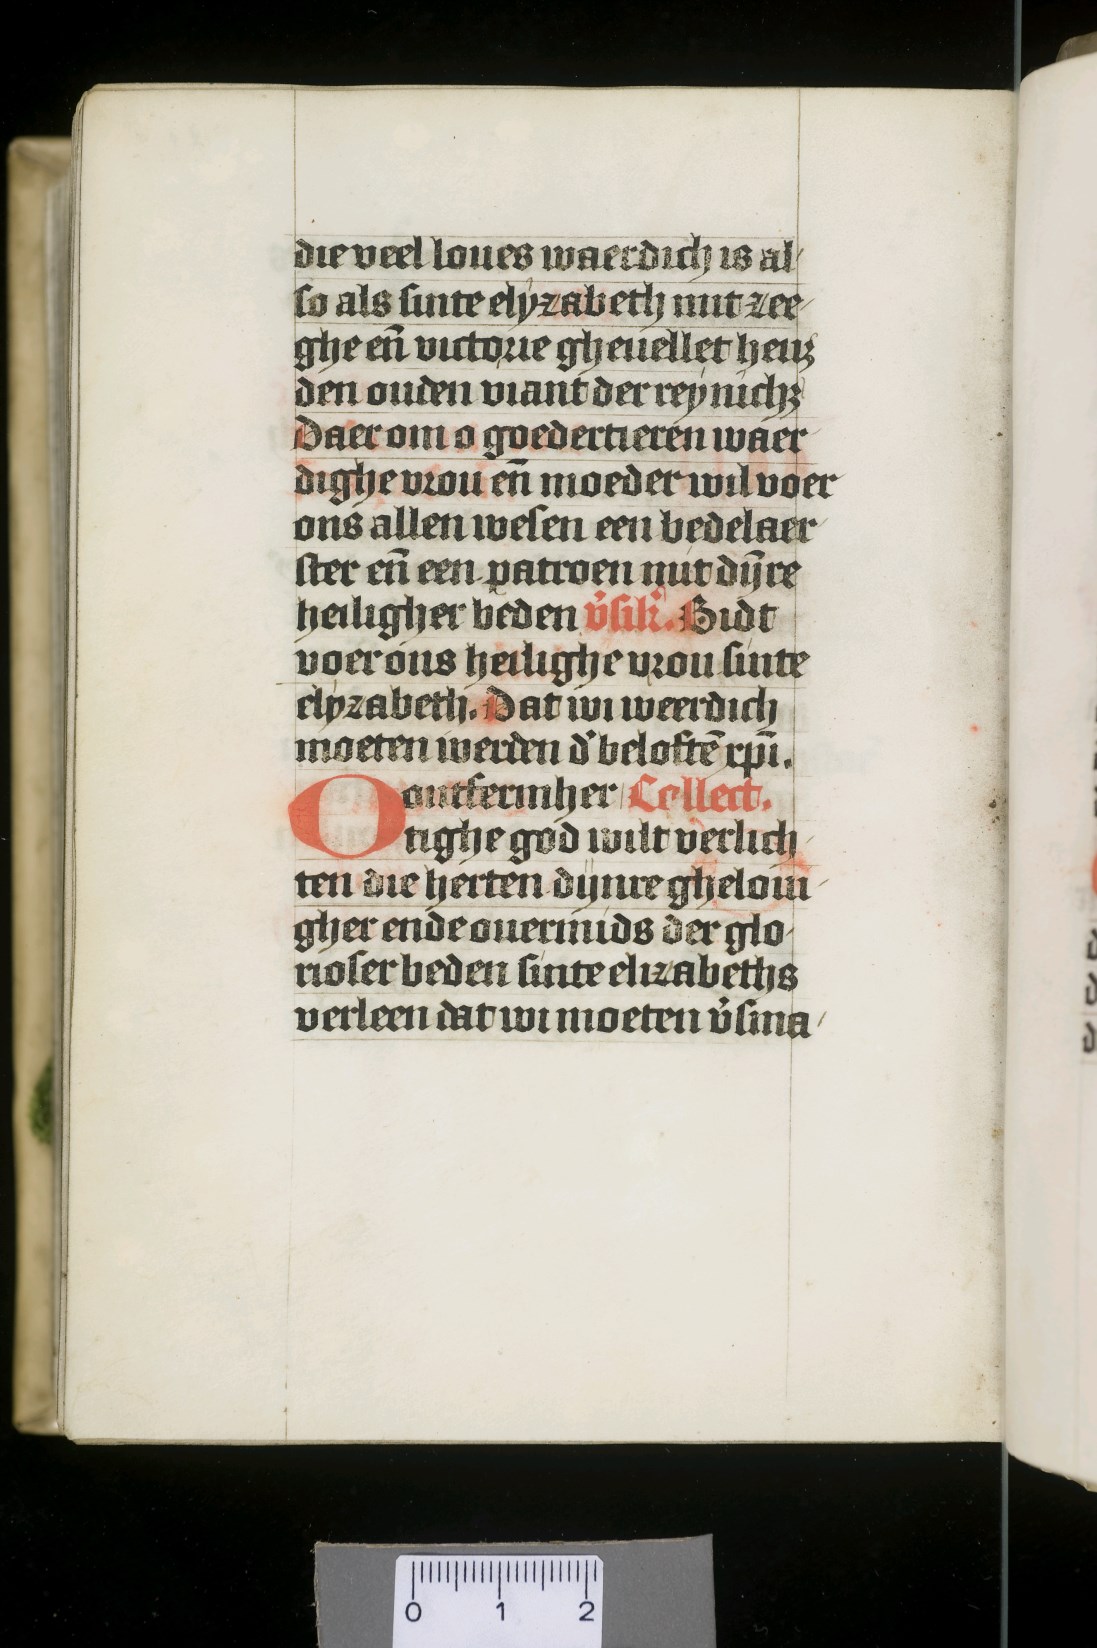 die veel loues waerdich is al/
so als sinte elyzabeth mit zee/
ghe en̄ victorie gheuellet heuꝫ
den ouden viant der reynichꝫ
Daer om o goedertieren waer/
dighe vrou en̄ moeder wil voer
ons allen wesen een bedelaer/
ster en̄ een patroen mit dijnre
heiligher beden v̓sik̓. Bidt
voer ons heilighe vrou sinte
elyzabeth. Dat wi weerdich
moeten werden d̓ beloftē xp̄i.
O ontfermher Collect.
tighe god wilt verlich/
ten die herten dijnre ghelouí/
gher ende ouermids der glo/
rioser beden sinte elizabeths
verleen dat wi moeten v̓sma/
0 1 2